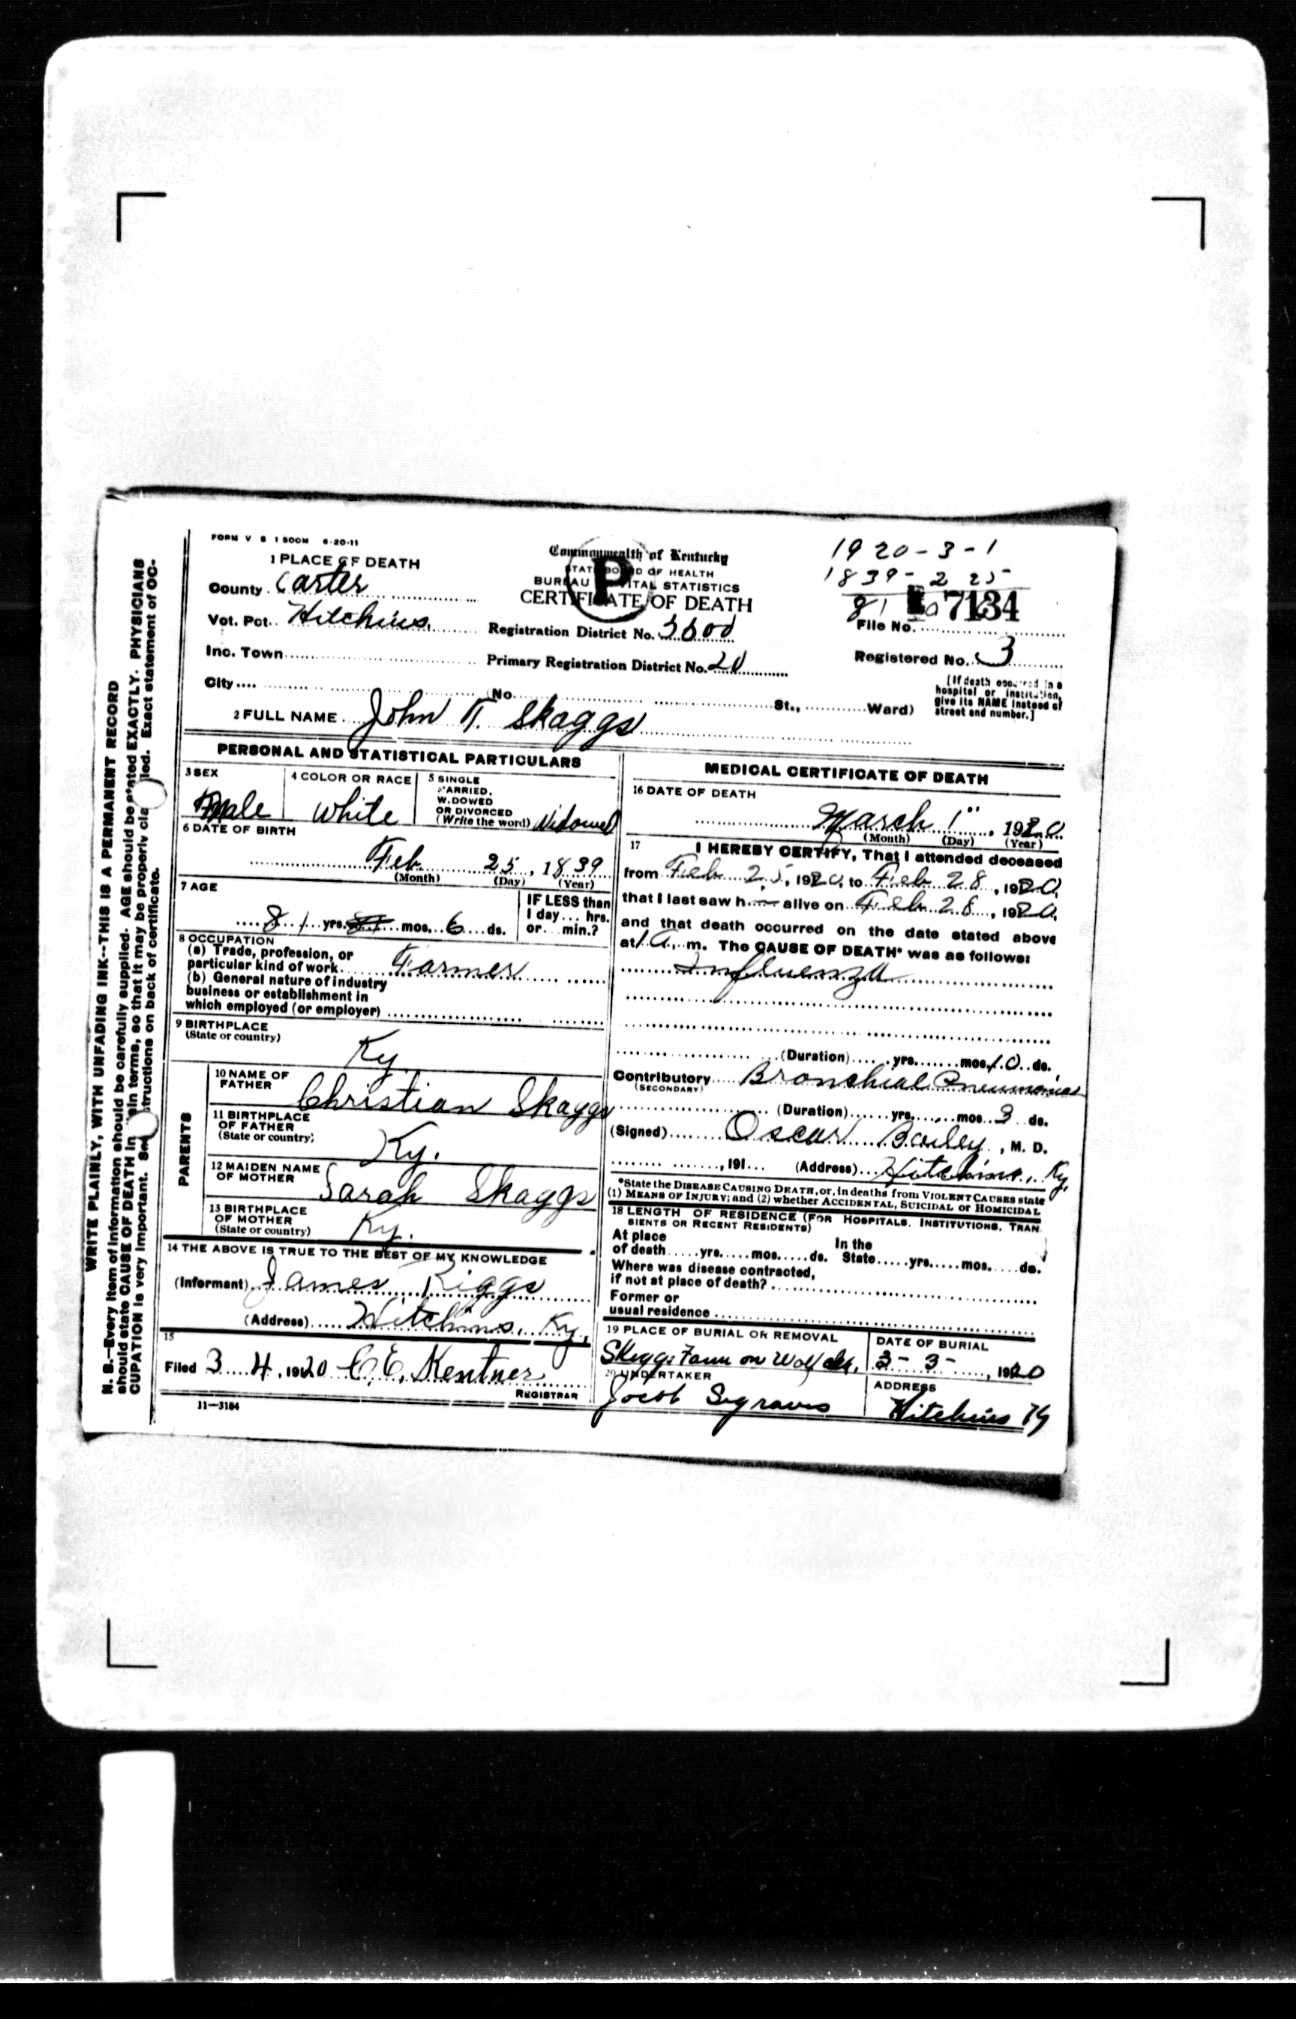 FORM V S 1 500M 6-20-11
1 PLACE OF DEATH
County Carter
Vot. Pct. Hitchins
Inc. Town
City
Commonwealth of Kentucky
STATE BOARD OF HEALTH
BUREAU VITAL STATISTICS
CERTIFICATE OF DEATH
P
Registration District No.
Primary Registration District No. 20
(No. St., Ward)
1920-3-1
1839-2 25
81
7134
File No.
Registered No. 3
[If death occurred in a
hospital or institution,
give its NAME instead of
street and number.]
2 FULL NAME John T. Skaggs
PERSONAL AND STATISTICAL PARTICULARS
3 SEX
Male
4 COLOR OR RACE
White
5 SINGLE
MARRIED,
WIDOWED
OR DIVORCED
(Write the word) Widowed
6 DATE OF BIRTH
Feb 25, 1839
(Month) (Day) (Year)
7 AGE
81 yrs. mos. 6 ds.
IF LESS than
1 day... hrs.
or... min.?
8 OCCUPATION
(a) Trade, profession, or
particular kind of work Farmer
(b) General nature of industry
business or establishment in
which employed (or employer)
9 BIRTHPLACE
(State or country)
Ky
PARENTS
10 NAME OF
FATHER Christian Skaggs
11 BIRTHPLACE
OF FATHER
(State or country) Ky.
12 MAIDEN NAME
OF MOTHER Sarah Skaggs
13 BIRTHPLACE
OF MOTHER
(State or country) Ky.
14 THE ABOVE IS TRUE TO THE BEST OF MY KNOWLEDGE
(Informant) James Riggs
(Address) Hitchins, Ky,
15
Filed 3 4, 1920 C. E. Kentner
REGISTRAR
11-3184
MEDICAL CERTIFICATE OF DEATH
16 DATE OF DEATH
March 1", 1920
(Month) (Day) (Year)
17 I HEREBY CERTIFY, That I attended deceased
from Feb 25, 1920, to Feb 28, 1920,
that I last saw h alive on Feb 28, 1920,
and that death occurred on the date stated above
at 1 A. m. The CAUSE OF DEATH* was as follows:
Influenza
(Duration) yrs. mos. 10 ds.
Contributory Bronchial Pneumonia
(SECONDARY)
(Duration) yrs. mos. 3 ds.
(Signed) Oscar Bailey, M. D.
, 191 (Address) Hitchins, Ky,
*State the DISEASE CAUSING DEATH, or, in deaths from VIOLENT CAUSES state
(1) MEANS OF INJURY; and (2) whether ACCIDENTAL, SUICIDAL or HOMICIDAL
18 LENGTH OF RESIDENCE (FOR HOSPITALS, INSTITUTIONS, TRAN
SIENTS OR RECENT RESIDENTS)
At place In the
of death yrs. mos. ds. State yrs. mos. ds.
Where was disease contracted,
if not at place of death?
Former or
usual residence
19 PLACE OF BURIAL OR REMOVAL
Skaggs Farm on Wolf
DATE OF BURIAL
3-3-, 1920
20 UNDERTAKER
Jacob Sygraves
ADDRESS
Hitchins Ky
WRITE PLAINLY, WITH UNFADING INK--THIS IS A PERMANENT RECORD
N. B.--Every item of information should be carefully supplied. AGE should be stated EXACTLY. PHYSICIANS
should state CAUSE OF DEATH in plain terms, so that it may be properly classified. Exact statement of OC-
CUPATION is very important. See instructions on back of certificate.